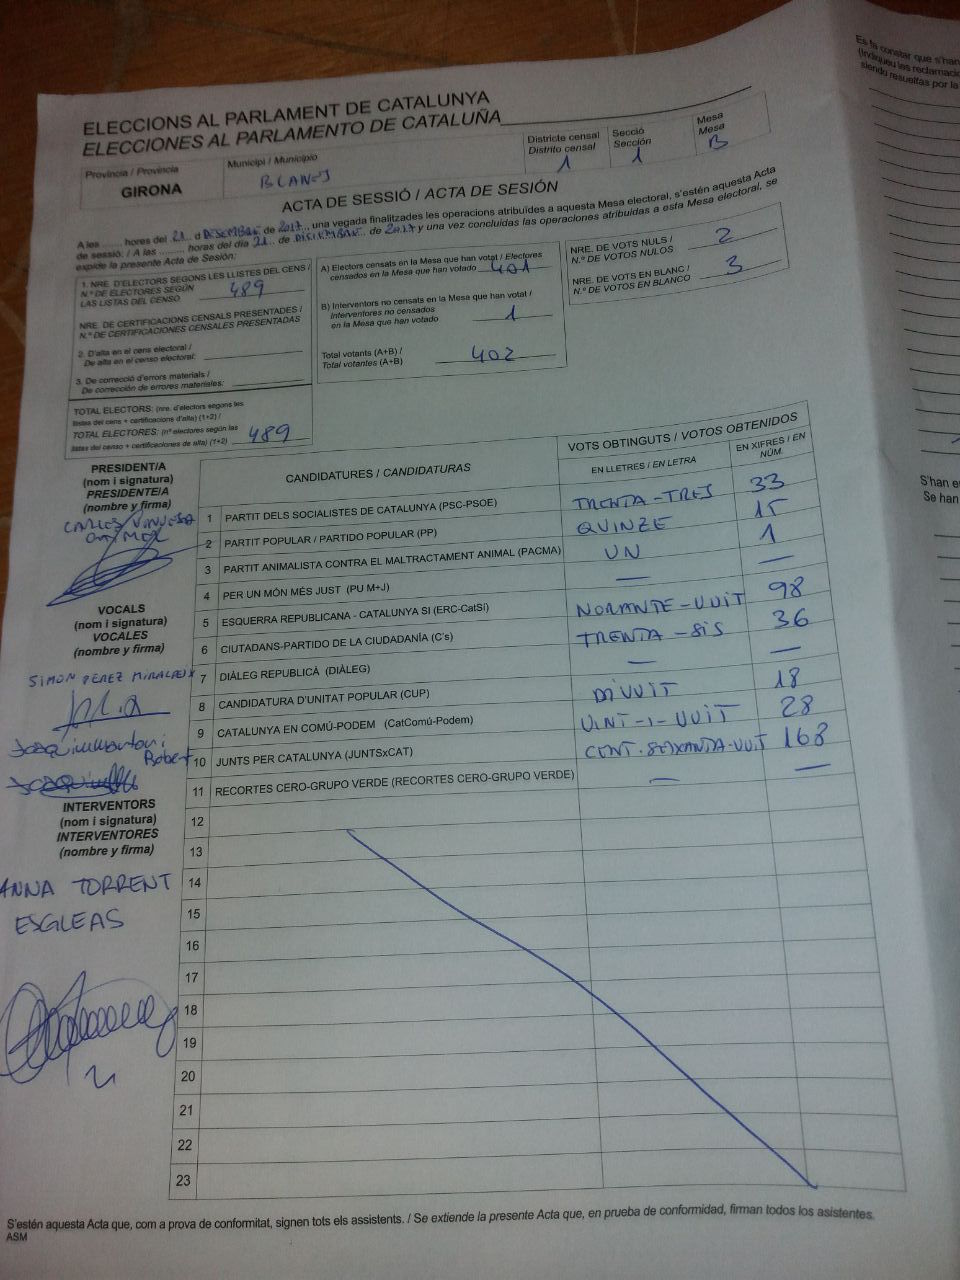 ELECCIONS AL PARLAMENT DE CATALUNYA
ELECCIONES AL PARLAMENTO DE CATALUÑA
Província / Provincia
GIRONA
Municipi / Municipio
BLANES
Districte censal
Distrito censal
1
Secció
Sección
1
Mesa
Mesa
B
ACTA DE SESSIÓ / ACTA DE SESIÓN
A les ....... hores del 21.. d DESEMBRE de 2017.., una vegada finalitzades les operacions atribuïdes a aquesta Mesa electoral, s'estén aquesta Acta
de sessió. / A las ......... horas del día 21.. de DICIEMBRE.. de 2017 y una vez concluidas las operaciones atribuidas a esta Mesa electoral, se
expide la presente Acta de Sesión:
1. NRE. D'ELECTORS SEGONS LES LLISTES DEL CENS /
N.º DE ELECTORES SEGÚN
LAS LISTAS DEL CENSO
489
NRE. DE CERTIFICACIONS CENSALS PRESENTADES /
N.º DE CERTIFICACIONES CENSALES PRESENTADAS
2. D'alta en el cens electoral /
De alta en el censo electoral:
3. De correcció d'errors materials /
De corrección de errores materiales:
TOTAL ELECTORS: (nre. d'electors segons les
llistes del cens + certificacions d'alta) (1+2) /
TOTAL ELECTORES: (nº electores según las
listas del censo + certificaciones de alta) (1+2)
489
A) Electors censats en la Mesa que han votat / Electores
censados en la Mesa que han votado
401
B) Interventors no censats en la Mesa que han votat /
Interventores no censados
en la Mesa que han votado
1
Total votants (A+B) /
Total votantes (A+B)
402
NRE. DE VOTS NULS /
N.º DE VOTOS NULOS
2
NRE. DE VOTS EN BLANC /
N.º DE VOTOS EN BLANCO
3
PRESIDENT/A
(nom i signatura)
PRESIDENTE/A
(nombre y firma)
CARLES
VOCALS
(nom i signatura)
VOCALES
(nombre y firma)
SIMON PEREZ
Robert
INTERVENTORS
(nom i signatura)
INTERVENTORES
(nombre y firma)
ANNA TORRENT
ESGLEAS
CANDIDATURES / CANDIDATURAS
VOTS OBTINGUTS / VOTOS OBTENIDOS
EN LLETRES / EN LETRA
EN XIFRES / EN
NÚM.
1 PARTIT DELS SOCIALISTES DE CATALUNYA (PSC-PSOE) TRENTA-TRES 33
2 PARTIT POPULAR / PARTIDO POPULAR (PP) QUINZE 15
3 PARTIT ANIMALISTA CONTRA EL MALTRACTAMENT ANIMAL (PACMA) UN 1
4 PER UN MÓN MÉS JUST (PU M+J) — —
5 ESQUERRA REPUBLICANA - CATALUNYA SI (ERC-CatSí) NORANTE-VUIT 98
6 CIUTADANS-PARTIDO DE LA CIUDADANÍA (C's) TRENTA-SIS 36
7 DIÀLEG REPUBLICÀ (DIÀLEG) — —
8 CANDIDATURA D'UNITAT POPULAR (CUP) DIVUIT 18
9 CATALUNYA EN COMÚ-PODEM (CatComú-Podem) VINT-I-VUIT 28
10 JUNTS PER CATALUNYA (JUNTSxCAT) CENT-SEIXANTA-VUIT 168
11 RECORTES CERO-GRUPO VERDE (RECORTES CERO-GRUPO VERDE) — —
12
13
14
15
16
17
18
19
20
21
22
23
S'estén aquesta Acta que, com a prova de conformitat, signen tots els assistents. / Se extiende la presente Acta que, en prueba de conformidad, firman todos los asistentes.
ASM
Es fa constar que s'han
(Indiqueu les
siendo resueltas por la
S'han
Se han